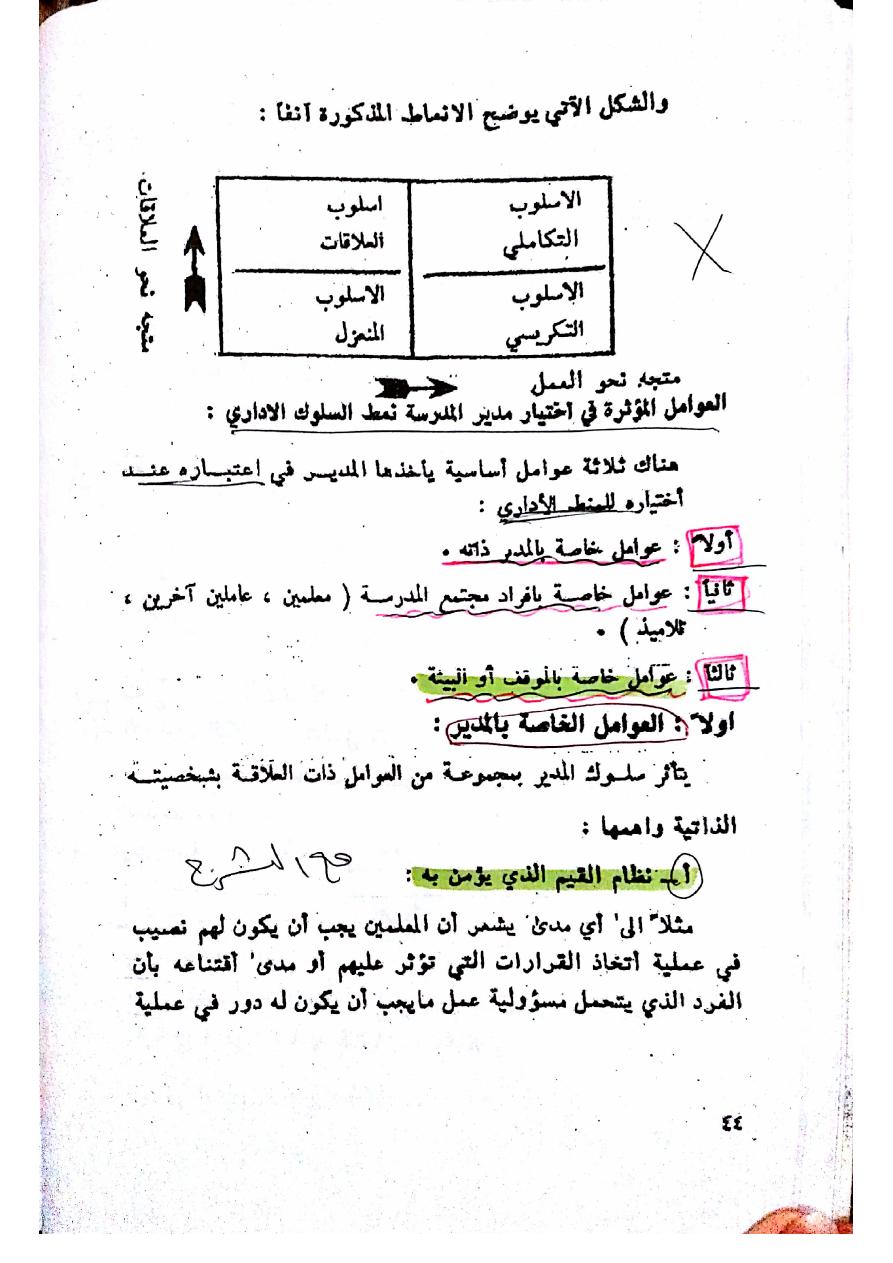 والشكل الآتي يوضح الانماط المذكورة آنفاً :
الاسلوب
التكاملي
اسلوب
العلاقات
الاسلوب
التكريسي
الاسلوب
المنعزل
متجه نحو العلاقات
متجه نحو العمل
العوامل المؤثرة في أختيار مدير المدرسة نمط السلوك الاداري :
هناك ثلاثة عوامل أساسية يأخذها المديـر في اعتبـاره عنـد
أختياره للمنط الأداري :
أولاً : عوامل خاصة بالمدير ذاته .
ثانياً : عوامل خاصـة بافراد مجتمع المدرسـة ( معلمين ، عاملين آخرين ،
تلاميذ ) .
ثالثاً : عوامل خاصة بالموقف أو البيئة .
اولاً : العوامل الخاصة بالمدير :
يتأثر سلـوك المدير بمجموعـة من العوامل ذات العلاقـة بشخصيتـه
الذاتية واهمها :
أ ـ نظام القيم الذي يؤمن به :
مثلاً الى أي مدى يشعر أن المعلمين يجب أن يكون لهم نصيب
في عملية أتخاذ القرارات التي تؤثر عليهم أو مدى أقتناعه بأن
الفرد الذي يتحمل مسؤولية عمل مايجب أن يكون له دور في عملية
٤٤